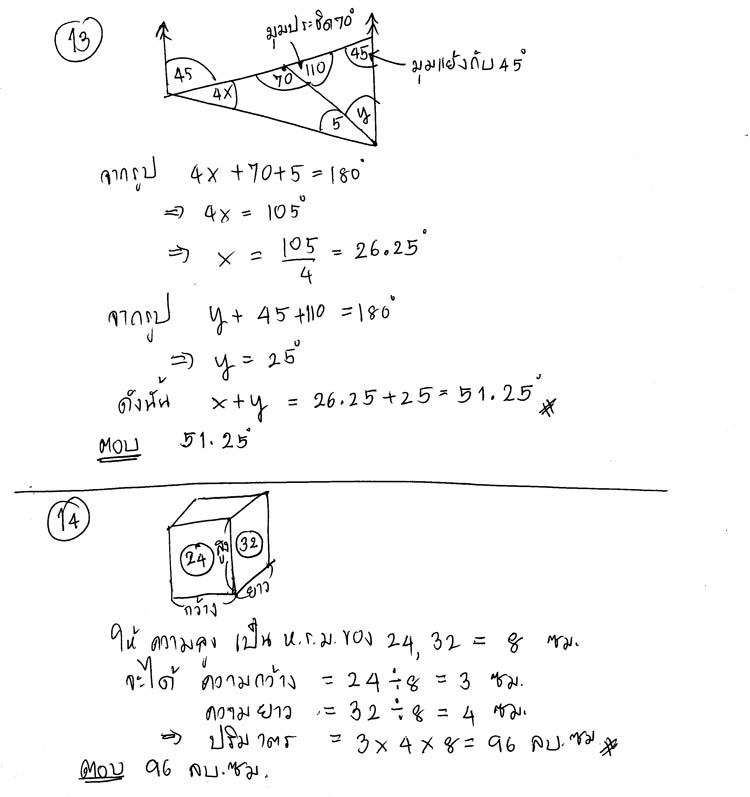 13
มุมประชิด 70°
45
4x
70
110
45
มุมแย้งกับ 45°
5
y
จากรูป 4x + 70 + 5 = 180°
⇒ 4x = 105°
⇒ x = 105/4 = 26.25°
จากรูป y + 45 + 110 = 180°
⇒ y = 25°
ดังนั้น x + y = 26.25 + 25 = 51.25° *
ตอบ 51.25°
14
24
สูง
32
กว้าง
ยาว
ให้ ความสูง เป็น ห.ร.ม. ของ 24, 32 = 8 ซม.
จะได้ ความกว้าง = 24 ÷ 8 = 3 ซม.
ความยาว = 32 ÷ 8 = 4 ซม.
⇒ ปริมาตร = 3 x 4 x 8 = 96 ลบ.ซม *
ตอบ 96 ลบ.ซม.